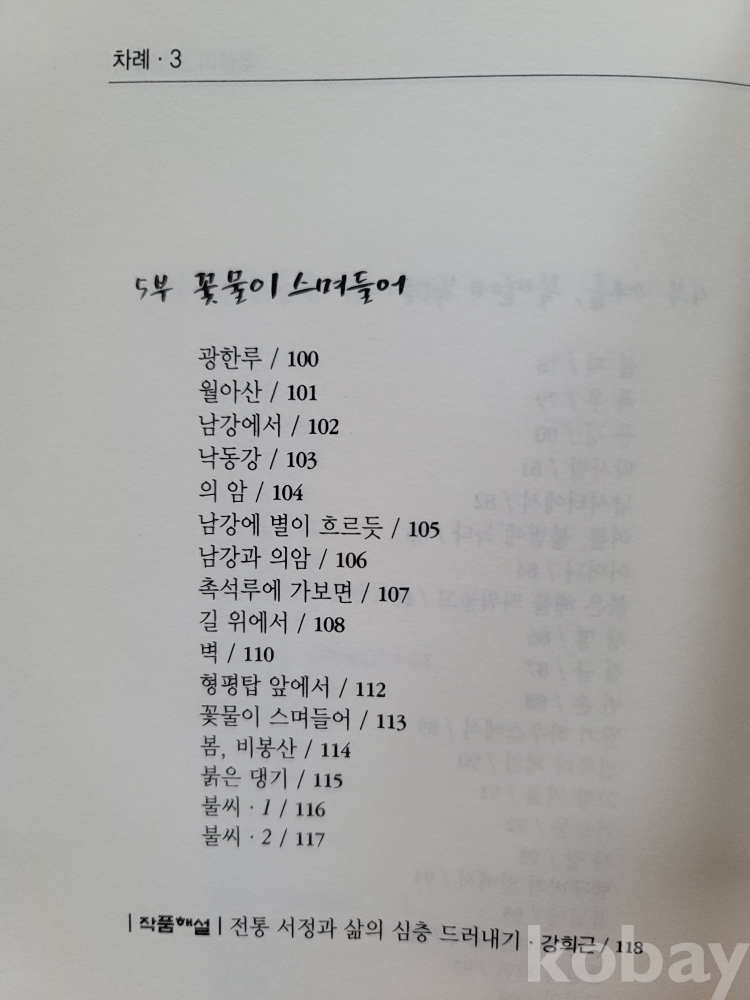 차례 · 3
5부 꽃물이 스며들어
광한루 / 100
월아산 / 101
남강에서 / 102
낙동강 / 103
의 암 / 104
남강에 별이 흐르듯 / 105
남강과 의암 / 106
촉석루에 가보면 / 107
길 위에서 / 108
벽 / 110
형평탑 앞에서 / 112
꽃물이 스며들어 / 113
봄, 비봉산 / 114
붉은 댕기 / 115
불씨 · 1 / 116
불씨 · 2 / 117
| 작품해설 | 전통 서정과 삶의 심층 드러내기 · 강희근 / 118
kobay